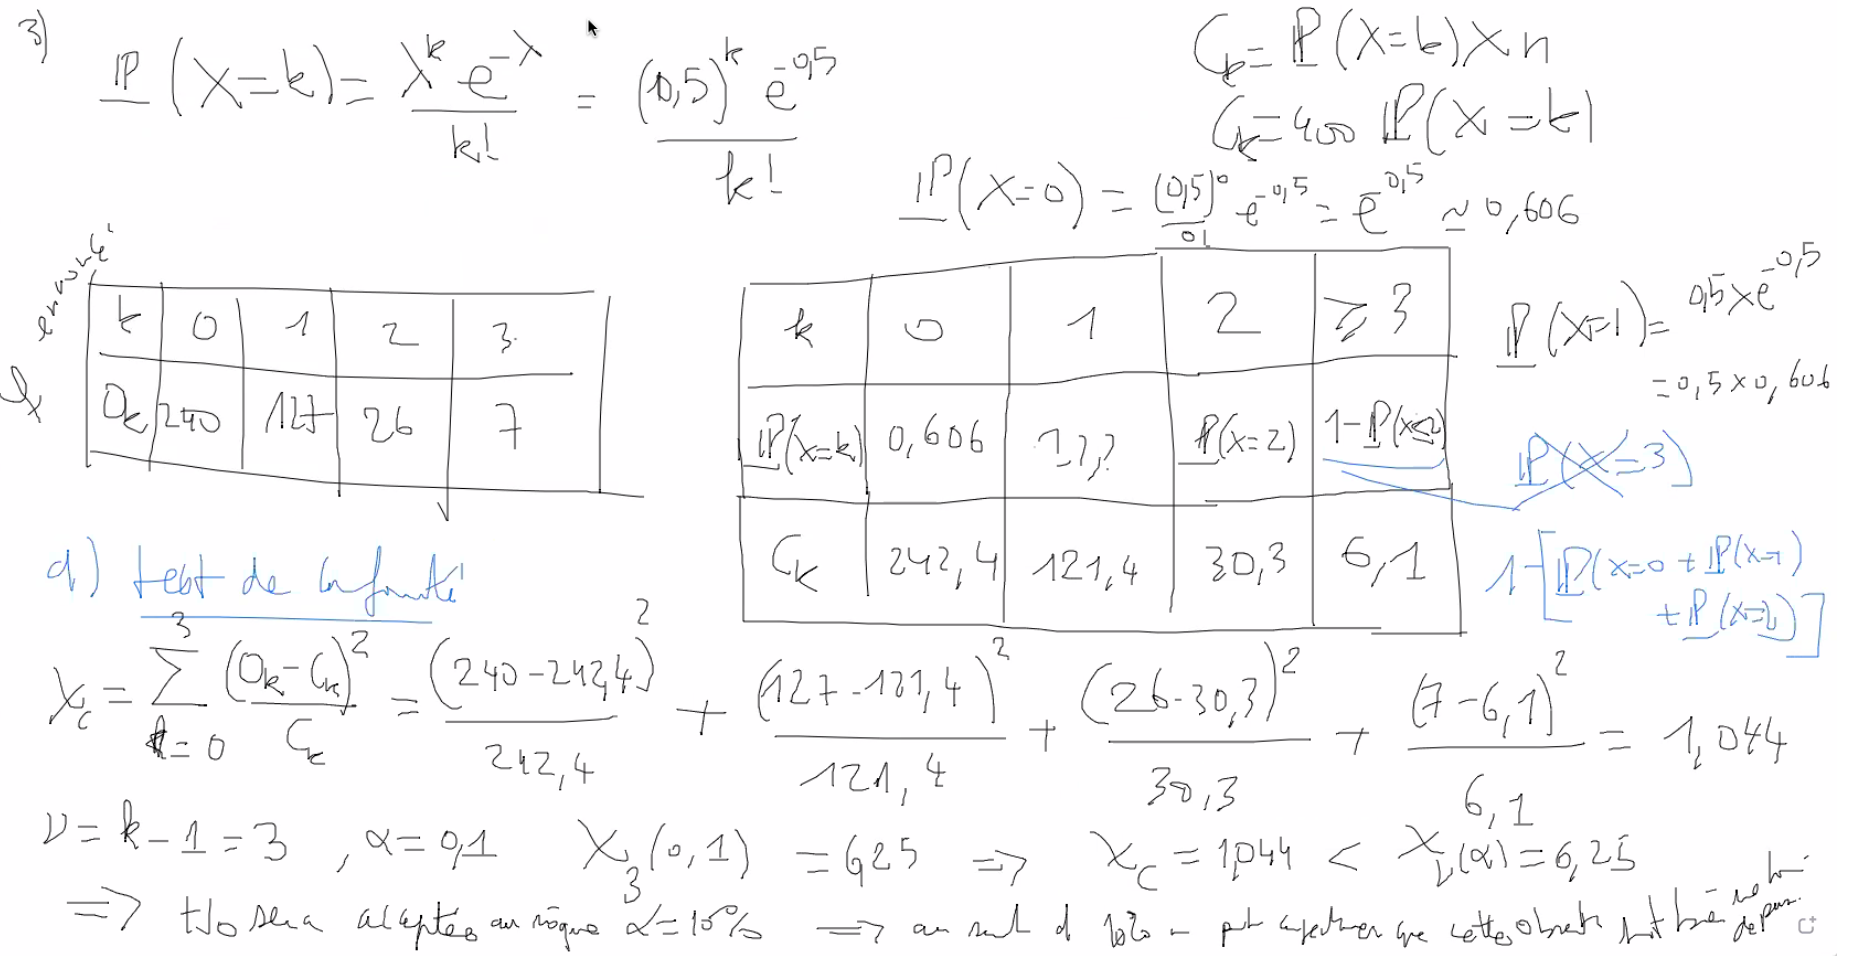 3)
ℙ(X=k) = λ^k e^-λ / k! = (0,5)^k e^-0,5 / k!
C_k = ℙ(X=k) × n
C_k = 400 ℙ(X=k)
ℙ(X=0) = (0,5)^0 / 0! e^-0,5 = e^-0,5 ≃ 0,606
énoncé
k 0 1 2 3
O_k 240 127 26 7
k 0 1 2 ⩾ 3
ℙ(X=k) 0,606 ??? ℙ(X=2) 1-ℙ(X≤2)
C_k 242,4 121,4 30,3 6,1
ℙ(X=1) = 0,5 × e^-0,5
= 0,5 × 0,606
ℙ(X=3)
1-[ℙ(X=0 + ℙ(X=1)
+ ℙ(X=2)]
d) test de conformité
χ_c = Σ_{k=0}^{3} (O_k - C_k)^2 / C_k = (240-242,4)^2 / 242,4 + (127-121,4)^2 / 121,4 + (26-30,3)^2 / 30,3 + (7-6,1)^2 / 6,1 = 1,044
ν = k-1 = 3 , α = 0,1 χ_3(0,1) = 6,25 => χ_c = 1,044 < χ_ν(α) = 6,25
=> Ho sera acceptée au risque α = 10% => au seuil d 10% que cette